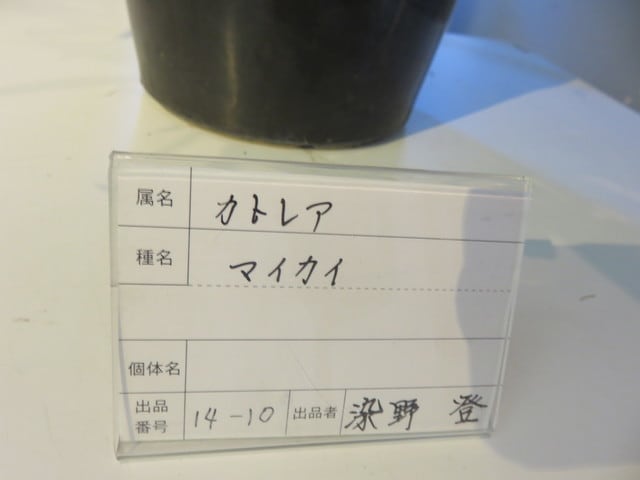 属名 カトレア
種名 マイカイ
個体名
出品番号 14-10 出品者 染野 登